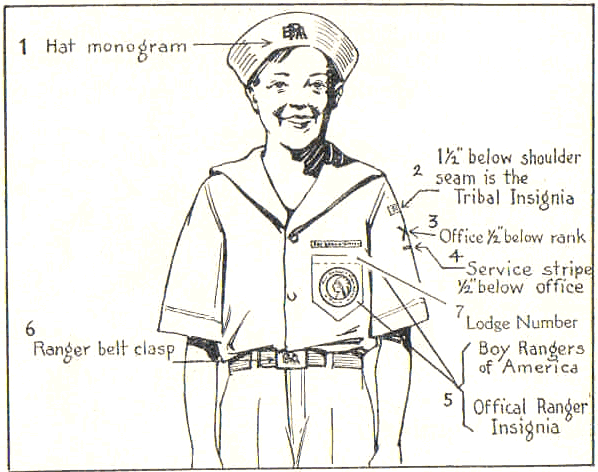 1 Hat monogram
BRA
2 1½" below shoulder
seam is the
Tribal Insignia
3 Office ½" below rank
4 Service stripe
½" below office
7 Lodge Number
5 Boy Rangers
of America
Offical Ranger
Insignia
6 Ranger belt clasp